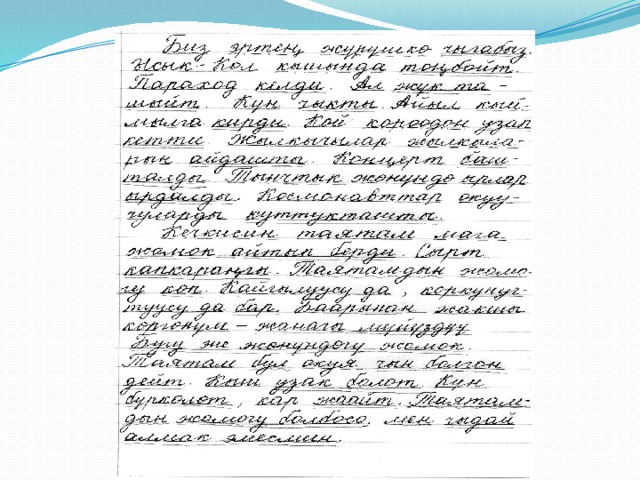 Биз эртең жүрүшкө чыгабыз.
Ысык-Көл кышында тоңбойт.
Параход келди. Ал жүк та-
шыйт. Күн чыкты. Айыл кый-
мылга кирди. Кой короодон узап
кетти. Жылкычылар жылкыла-
рын айдашты. Концерт баш-
талды. Тынчтык жөнүндө ырлар
ырдалды. Космонавттар окуу-
чуларды куттукташты.
Кечкисин таятам мага
жомок айтып берди. Сырт
капкараңгы. Таятамдын жомо-
гу көп. Кайгылуусу да, коркунуч-
туусу да бар. Баарынан жакшы
көргөнүм – жанагы мүйүздүү
Бугу эне жөнүндөгү жомок.
Таятам бул окуя чын болгон
дейт. Кыш узак болот. Күн
бүркөлөт, кар жаайт. Таятам-
дын жомогу болбосо, мен чыдай
алмак эмесмин.